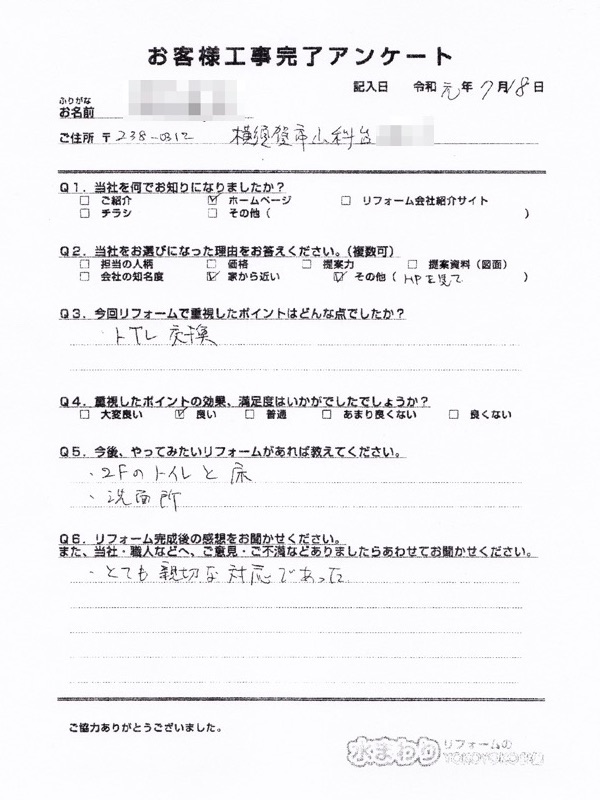 お客様工事完了アンケート
記入日 令和 元 年 7月 18 日
ふりがな
お名前
ご住所 〒238-0312 横須賀市山科台
Q1．当社を何でお知りになりましたか？
□ ご紹介 ☑ ホームページ □ リフォーム会社紹介サイト
□ チラシ □ その他（ ）
Q2．当社をお選びになった理由をお答えください。（複数可）
□ 担当の人柄 □ 価格 □ 提案力 □ 提案資料（図面）
□ 会社の知名度 ☑ 家から近い ☑ その他（HPを見て ）
Q3．今回リフォームで重視したポイントはどんな点でしたか？
・トイレ交換
Q4．重視したポイントの効果、満足度はいかがでしたでしょうか？
□ 大変良い ☑ 良い □ 普通 □ あまり良くない □ 良くない
Q5．今後、やってみたいリフォームがあれば教えてください。
・2Fのトイレと床
・洗面所
Q6．リフォーム完成後の感想をお聞かせください。
また、当社・職人などへ、ご意見・ご不満などありましたらあわせてお聞かせください。
・とても親切な対応であった
ご協力ありがとうございました。
水まわり リフォームの